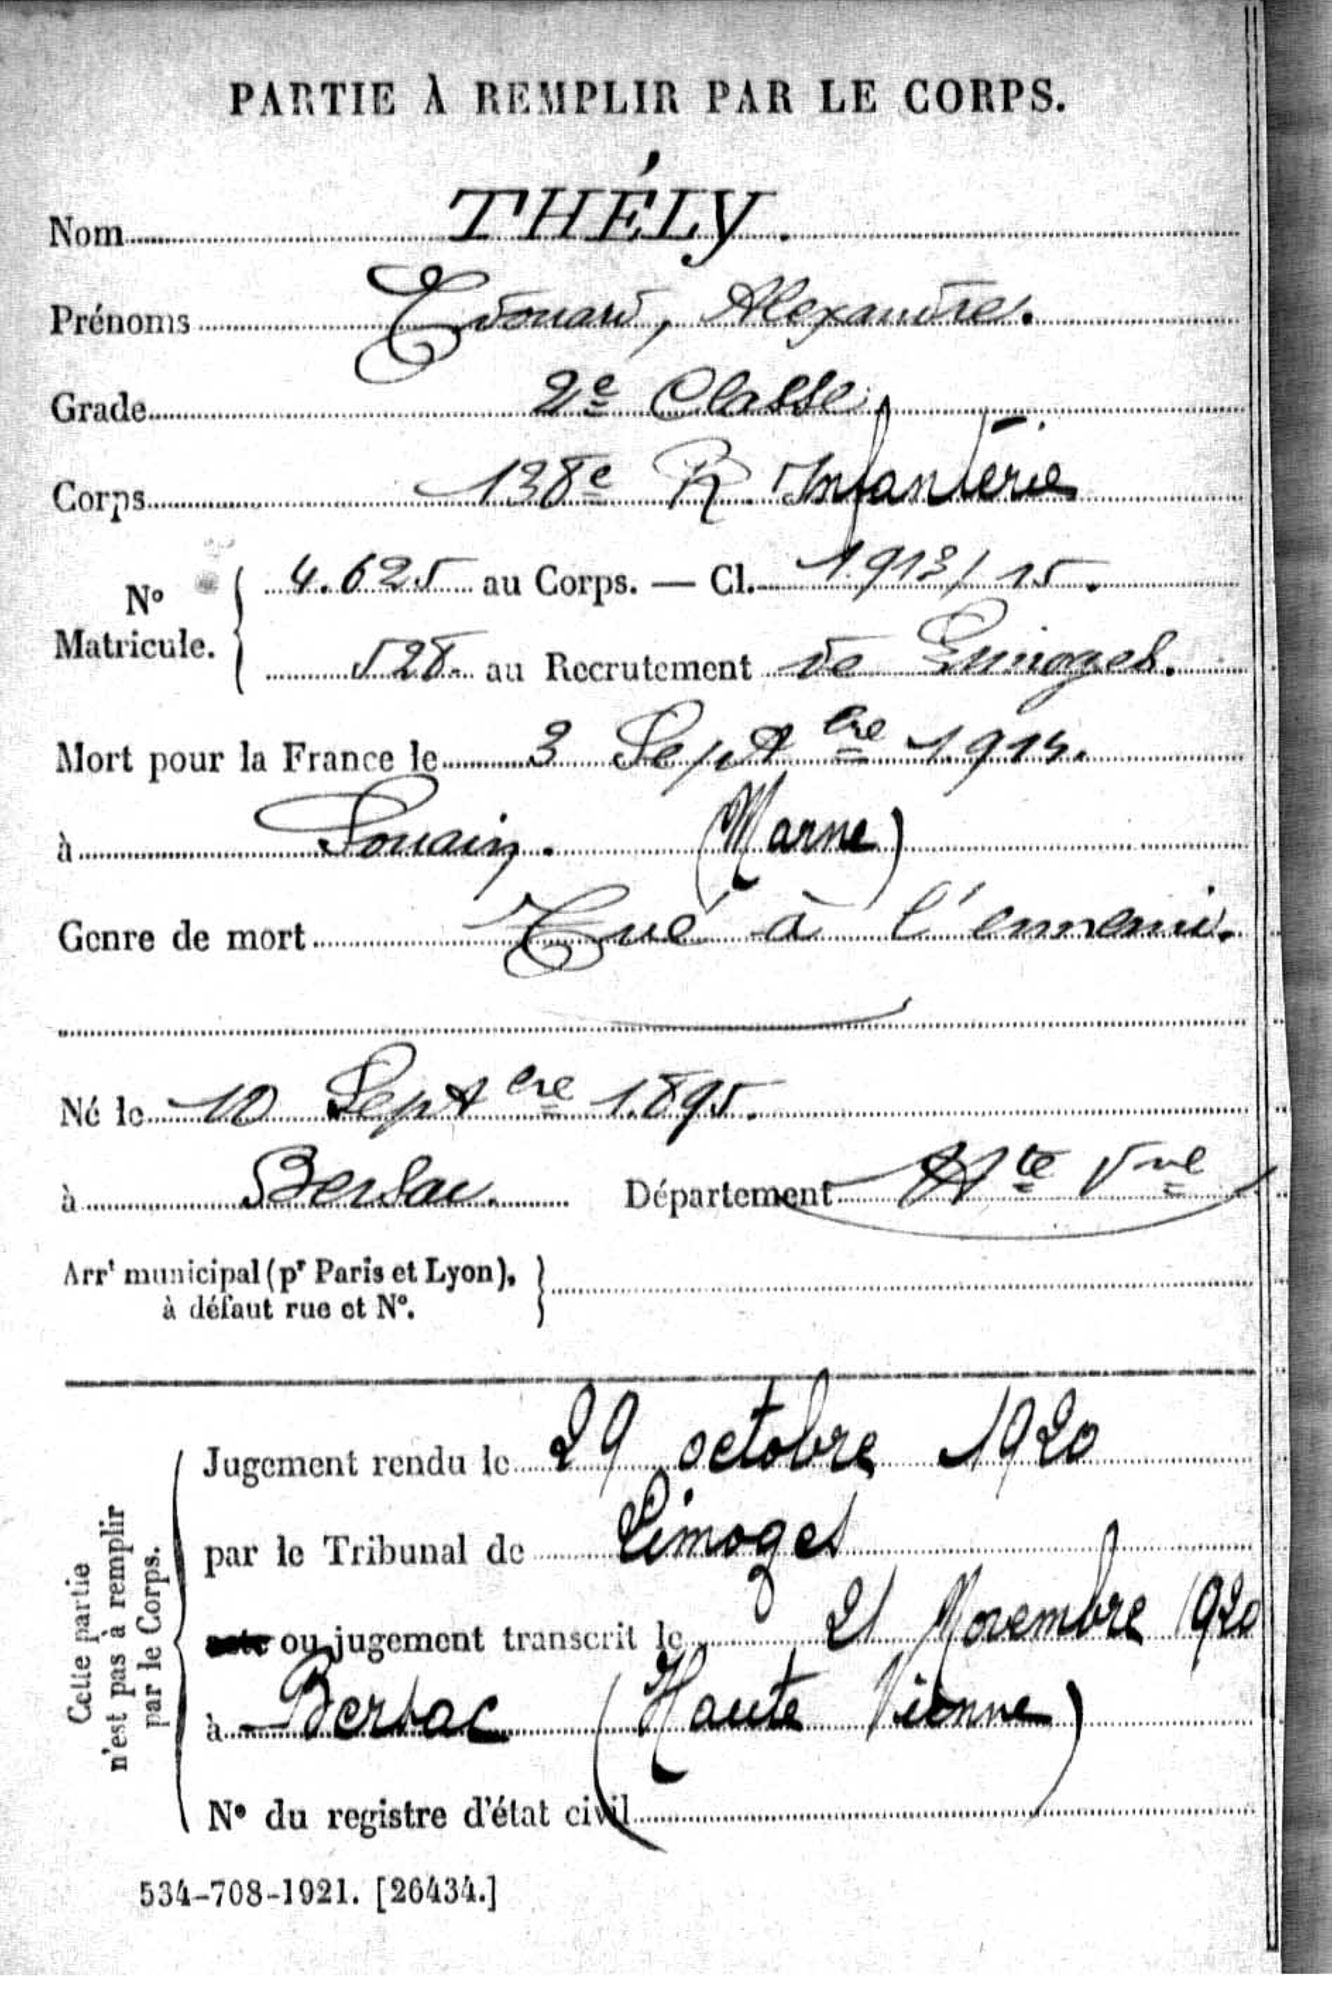 PARTIE À REMPLIR PAR LE CORPS.
Nom THÉLY.
Prénoms Edouard, Alexandre.
Grade 2e Classe
Corps 138e R. Infanterie
No Matricule. { 4.625 au Corps. — Cl. 1913/15.
528 au Recrutement de Limoges.
Mort pour la France le 3 Septbre 1914.
à Souain. (Marne)
Genre de mort Tué à l'ennemi.
Né le 10 Septbre 1895.
à Bersac. Département Hte Vne
Arrt municipal (pr Paris et Lyon), }
à défaut rue et No.
Cette partie
n'est pas à remplir
par le Corps.
Jugement rendu le 29 octobre 1920
par le Tribunal de Limoges
acte ou jugement transcrit le 21 Novembre 1920
à Bersac (Haute Vienne)
No du registre d'état civil
534-708-1921. [26434.]